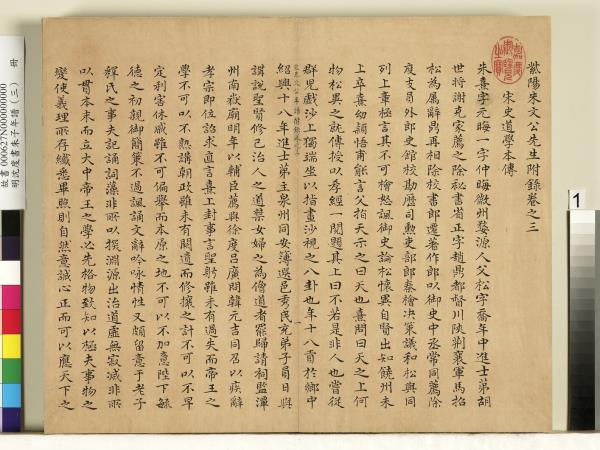 紫陽朱文公先生附錄卷之三
宋史道學本傳
朱熹字元晦一字仲晦徽州婺源人父松字喬年中進士第胡
世將謝克家薦之除祕書省正字趙鼎都督川陝荊襄軍馬招
松為屬辭鼎再相除校書郎遷著作郎以御史中丞常同薦除
度支員外郎史館校勘歷司勳吏部郎秦檜決策議和松與同
列上章極言其不可檜怒諷御史論松懷異自賢出知饒州未
上卒熹幼穎悟甫能言父指天示之曰天也熹問曰天之上何
物松異之就傅授以孝經一閱題其上曰不若是非人也嘗從
群兒戲沙上獨端坐以指畫沙視之八卦也年十八貢於鄉中
紹興十八年進士第主泉州同安簿選邑秀民充弟子員日與
講說聖賢修己治人之道禁女婦之為僧道者罷歸請祠監潭
州南嶽廟明年以輔臣薦與徐度呂廣問韓元吉同召以疾辭
孝宗即位詔求直言熹上封事言聖躬雖未有過失而帝王之
學不可以不熟講朝政雖未有闕遺而修攘之計不可以不早
定利害休戚雖不可徧舉而本原之地不可以不加意陛下毓
德之初親御簡策不過諷誦文辭吟咏情性又頗留意于老子
釋氏之事夫記誦詞藻非所以探淵源出治道虛無寂滅非所
以貫本末而立大中帝王之學必先格物致知以極夫事物之
變使義理所存纖悉畢照則自然意誠心正而可以應天下之
故書000627N000000000
明沈度書朱子年譜(三)
冊
1